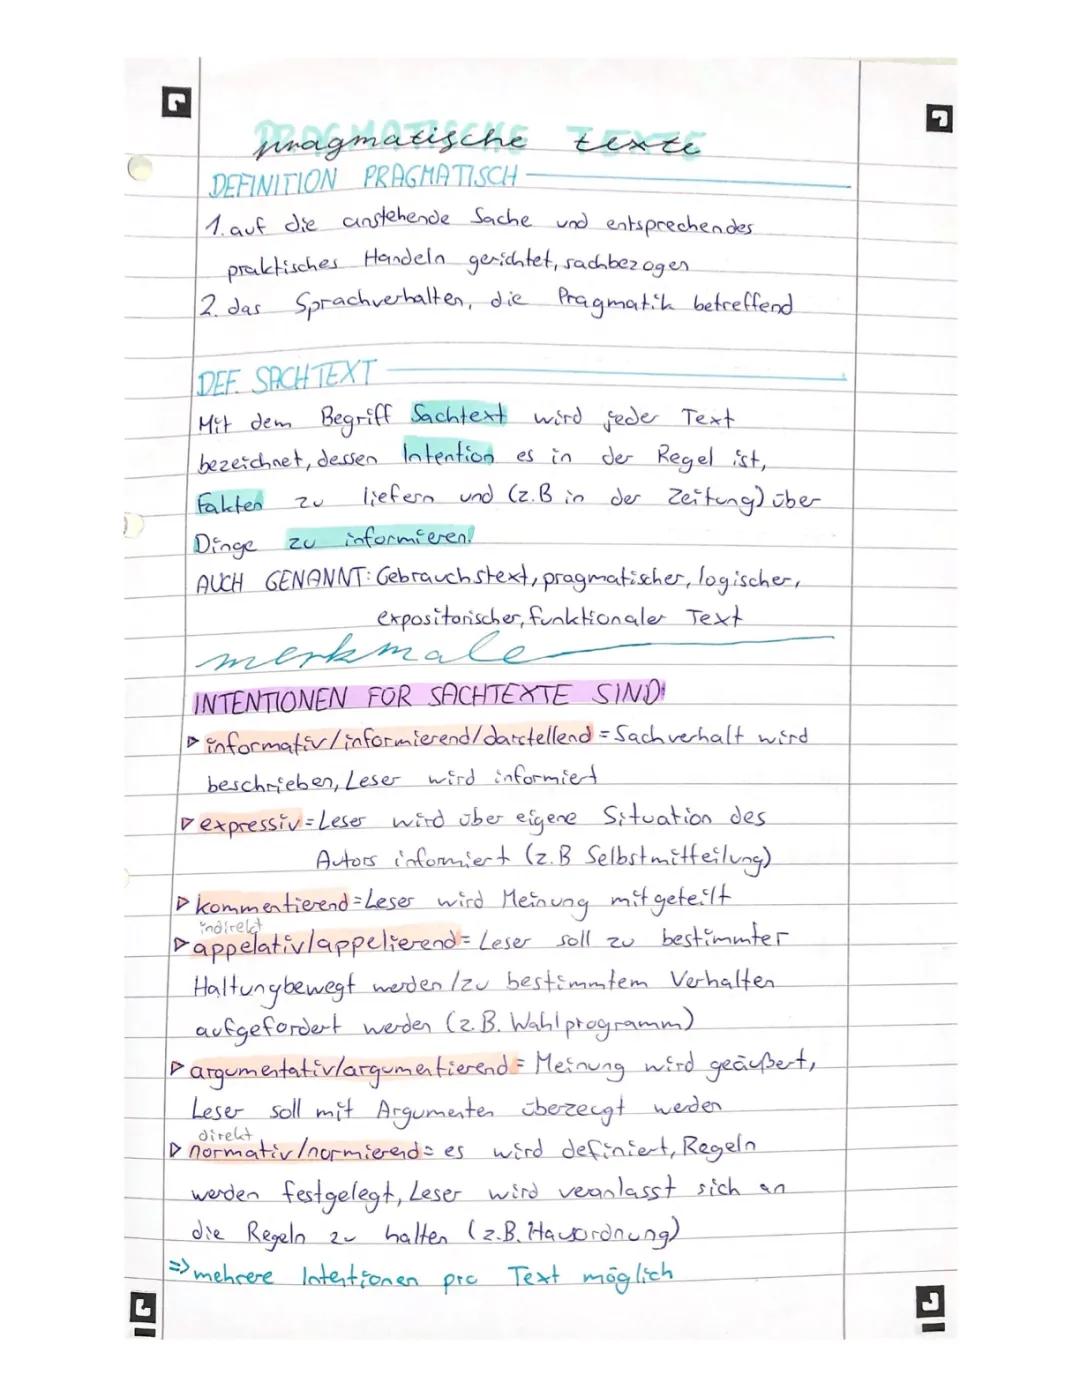 pragmatische texte
DEFINITION PRAGMATISCH
1. auf die anstehende Sache und entsprechendes
praktisches Handeln gerichtet, sachbezogen
2. das Sprachverhalten, die Pragmatik betreffend
DEF. SACHTEXT
Mit dem Begriff Sachtext wird jeder Text
bezeichnet, dessen Intention es in der Regel ist,
Fakten zu liefern und (z.B in der Zeitung) über
Dinge zu informieren!
AUCH GENANNT: Gebrauchstext, pragmatischer, logischer,
expositorischer, funktionaler Text
merkmale
INTENTIONEN FÜR SACHTEXTE SIND:
▷ informativ/informierend/darstellend = Sachverhalt wird
beschrieben, Leser wird informiert
▷ expressiv = Leser wird über eigene Situation des
Autors informiert (z.B Selbstmitteilung)
▷ kommentierend = Leser wird Meinung mitgeteilt
indirekt
▷ appelativ/appelierend = Leser soll zu bestimmter
Haltung bewegt werden / zu bestimmtem Verhalten
aufgefordert werden (z.B. Wahlprogramm)
▷ argumentativ/argumentierend = Meinung wird geäußert,
Leser soll mit Argumenten überzeugt werden
direkt
▷ normativ/normierend = es wird definiert, Regeln
werden festgelegt, Leser wird veranlasst sich an
die Regeln zu halten (z.B. Hausordnung)
=> mehrere Intentionen pro Text möglich